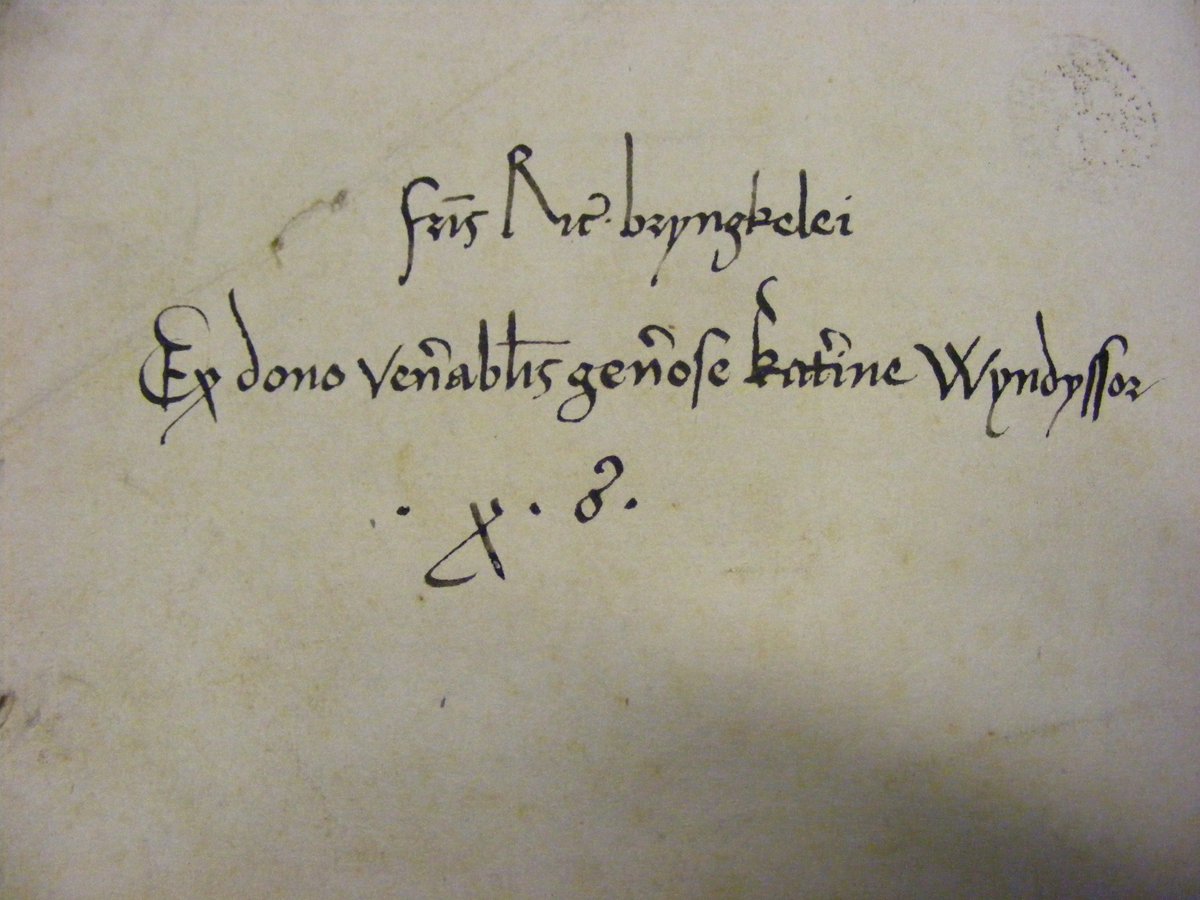 fr̄is Ric̃. bryngkelei
Ex dono ven̄abl̄is gen̄ose kat̄ine Wyndyssor
. x . 8 .